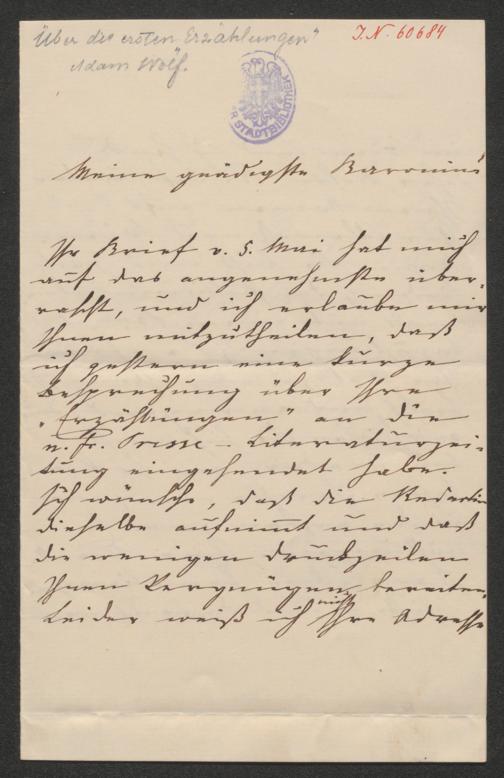 Über die ersten Erzählungen"
Adam Wolf.
I.N. 60684
STADTBIBLIOTHEK
Meine gnädigste Baronin!
Ihr Brief v. 5. Mai hat mich
auf das angenehmste über-
rascht, und ich erlaube mir
Ihnen mitzutheilen, daß
ich gestern eine kurze
Besprechung über Ihre
„Erzählungen" an die
n. fr. Presse - Literaturzei-
tung eingesendet habe.
Ich wünsche, daß die Redaction
dieselbe aufnimmt und daß
die wenigen Druckzeilen
Ihnen Vergnügen bereiten.
Leider weiß ich nicht Ihre Adresse